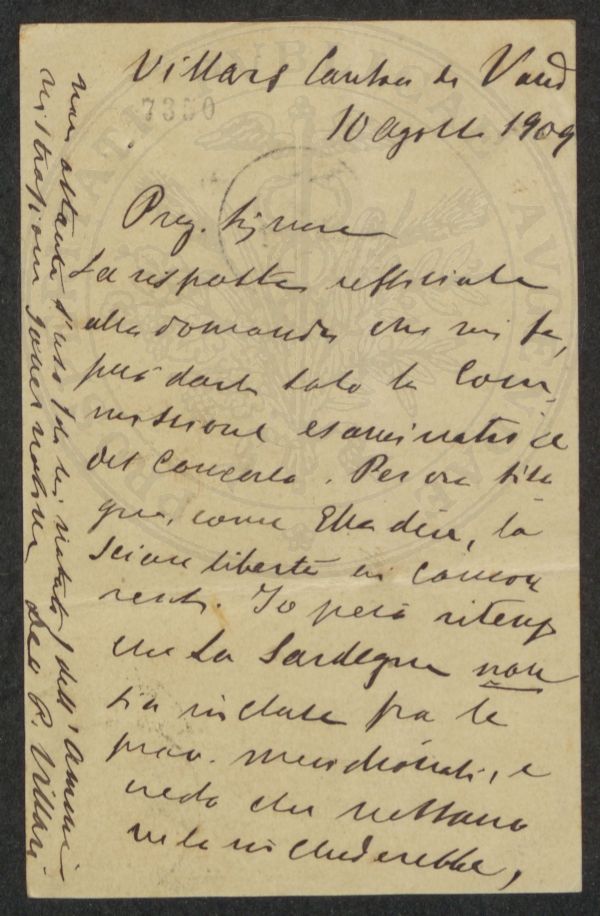 Villars Canton de Vaud
7350
10 agosto 1909
Preg. Signore
La risposta ufficiale
alla domanda che mi fa,
può darla solo la Com
missione esaminatrice
del Concorso. Per ora biso
gna, come Ella dice, la
sciare libertà ai concor
renti. Io però ritengo
che la Sardegna non
sia inclusa fra le
prov. meridionali, e
credo che nessuno
ve la includerebbe,
non ostante l'uso (da lei notato) dell'Ammi
nistrazione governativa Dev P. Villari